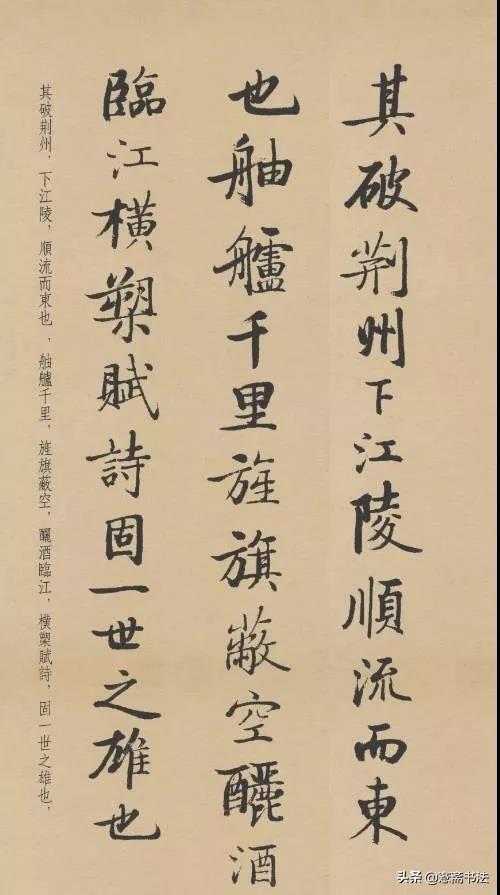 其破荊州下江陵順流而東
也舳艫千里旌旗蔽空釃酒
臨江橫槊賦詩固一世之雄也
其破荊州，下江陵，順流而東也，舳艫千里，旌旗蔽空，釃酒臨江，橫槊賦詩，固一世之雄也，
头条 @斋书法